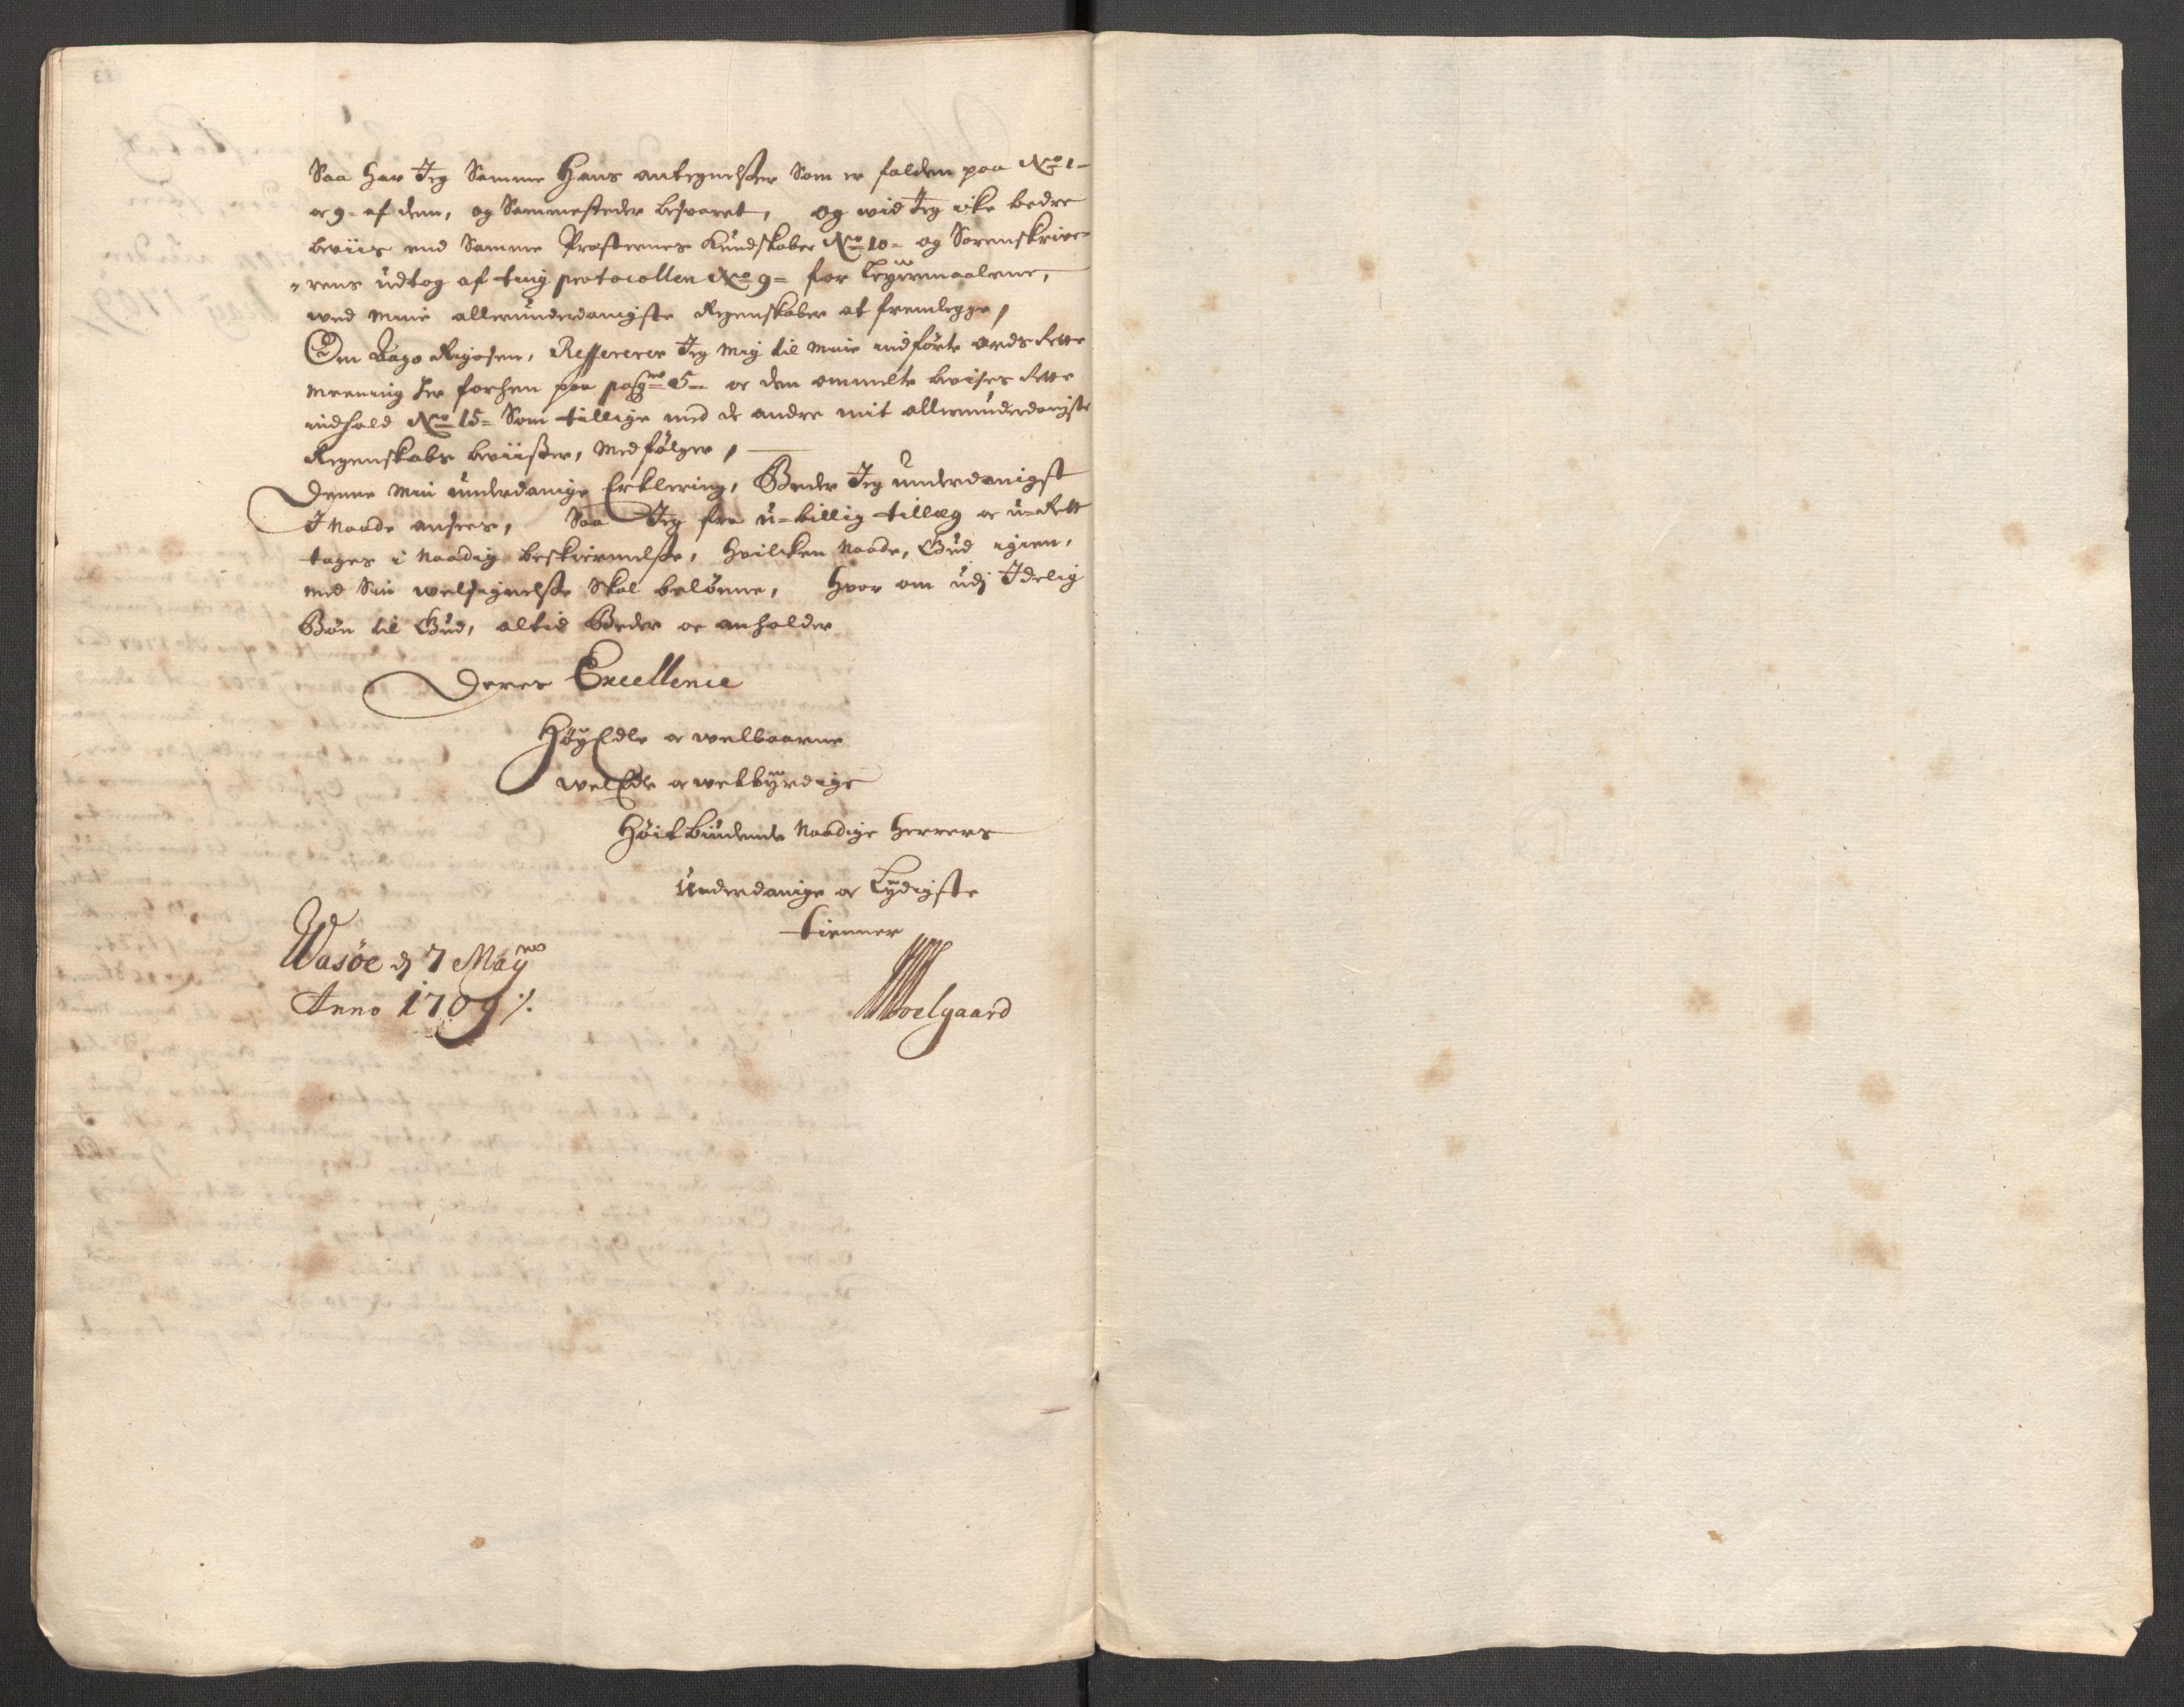 Saa har Jeg Samme Hans antegnelser Som er falden paa No 1-
or 9- af dem, og Sammesteder besvaret, og wid Jeg icke bedre
beviis end Samme Presternes Kundskaber No 10- og Sorenskrive-
-rens udtog af ting protocollen No 9- for Leÿermaalene,
med mine allerunderdanigste Regenskaber at fremlegge,
Om Refererer Jeg mig til min indførte ords Rette
meening her forhen paa pag 5- or den ommelte bevises Rette
indhold No 15- Som tillige med de andre mit allerunderdanigste
Regenskabs beviisser, medfølger,
Denne min underdanige Erklering, Beder Jeg underdanigst
I Naade ansees, Saa Jeg fra u-billig tillæg or u-Rett
tages i Naadig beskiermelse, hvilcken Naade, Gud igien,
med Sin welsignelse Skal belønne, hvor om udj Idelig
Bøn til Gud, altid Beder or anholder
Deres Excellence
HøyEdle or welbaarne
welEdle or welbÿrdige
Høitbiudende Naadige Herrers
Underdanige or Lÿdigste
tienner
Wasöe d 7 Maÿ
Anno 1709 ./.
Moelgaard